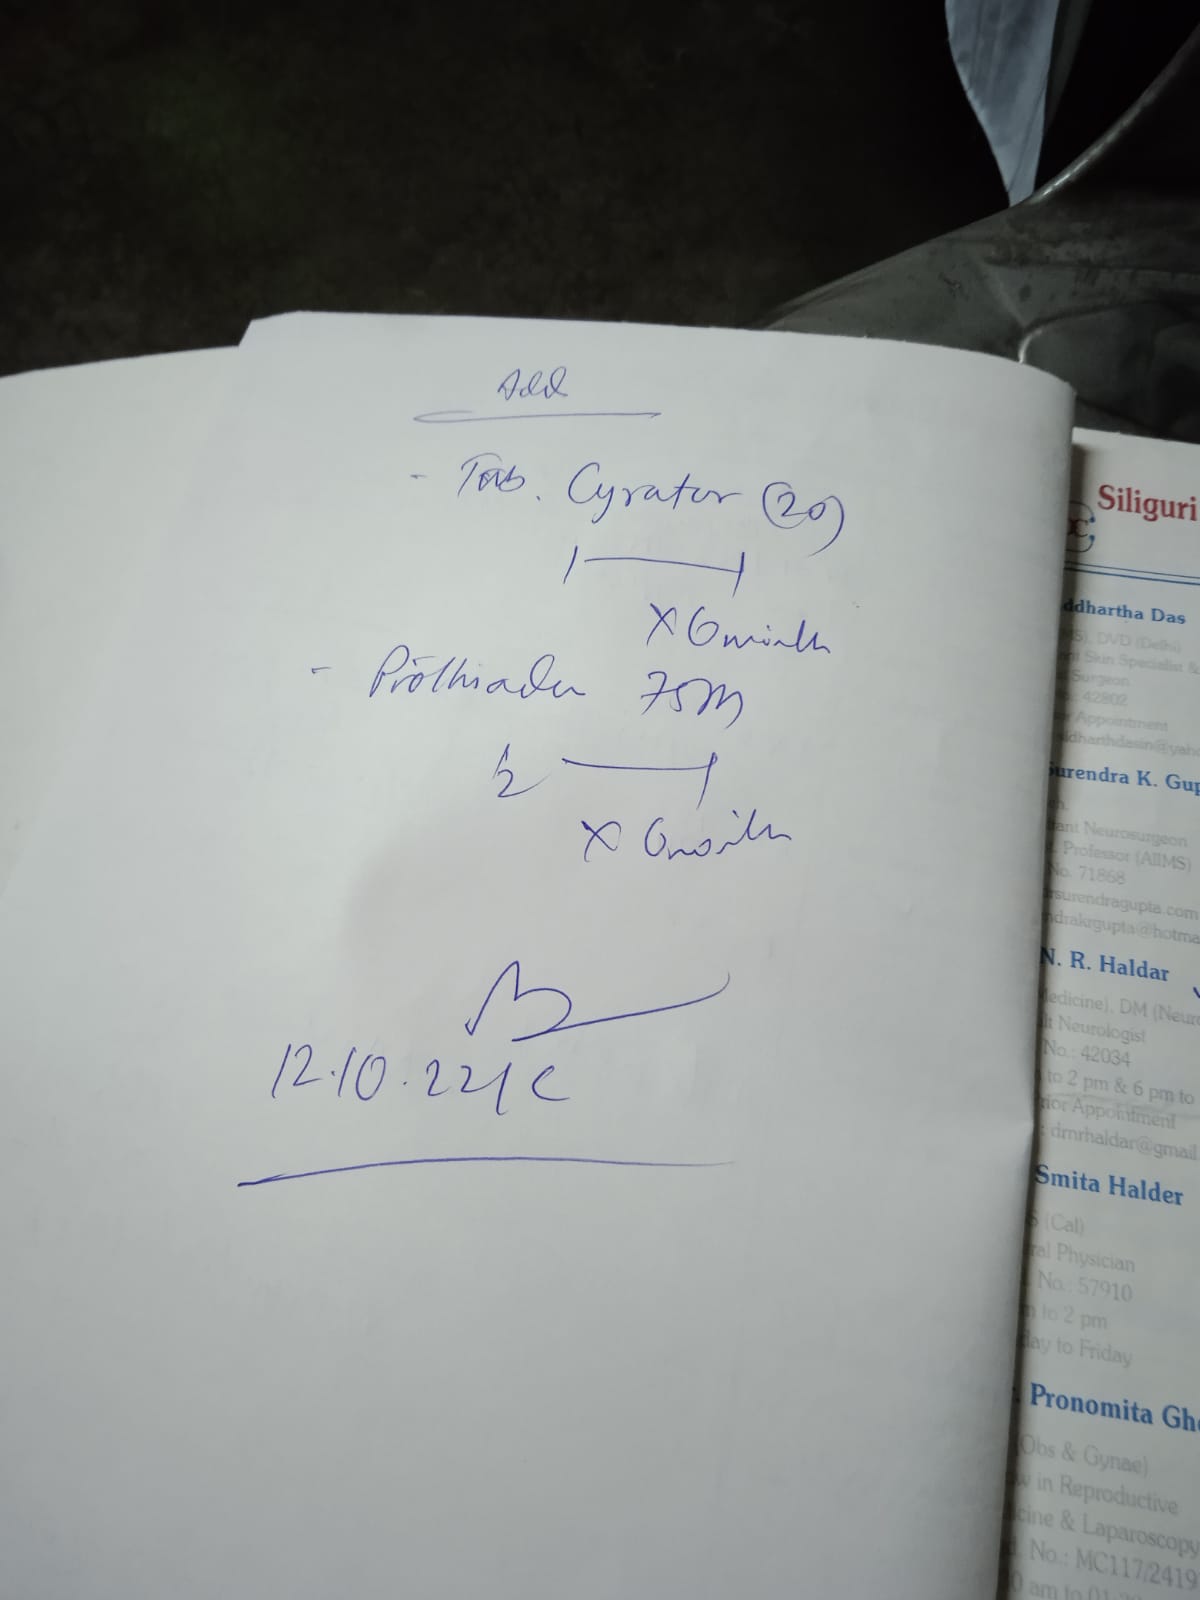 Add
- Tab. Cyrator (20)
1 ——
X 6 month
- Prothiaden 75M
1/2 ——
X 6 month
12.10.22
Siliguri
ddhartha Das
DVD (Delhi)
Skin Specialist &
Surgeon
42802
Appointment
Surendra K. Gup
Neurosurgeon
Professor (AIIMS)
No. 71868
rsurendragupta.com
ndrakrgupta@hotma
N. R. Haldar
Medicine), DM (Neuro
lt Neurologist
No.: 42034
to 2 pm & 6 pm to
rior Appointment
: drnrhaldar@gmail
Smita Halder
(Cal)
ral Physician
No.: 57910
to 2 pm
day to Friday
Pronomita Gho
(Obs & Gynae)
w in Reproductive
icine & Laparoscopy
No.: MC117/2419